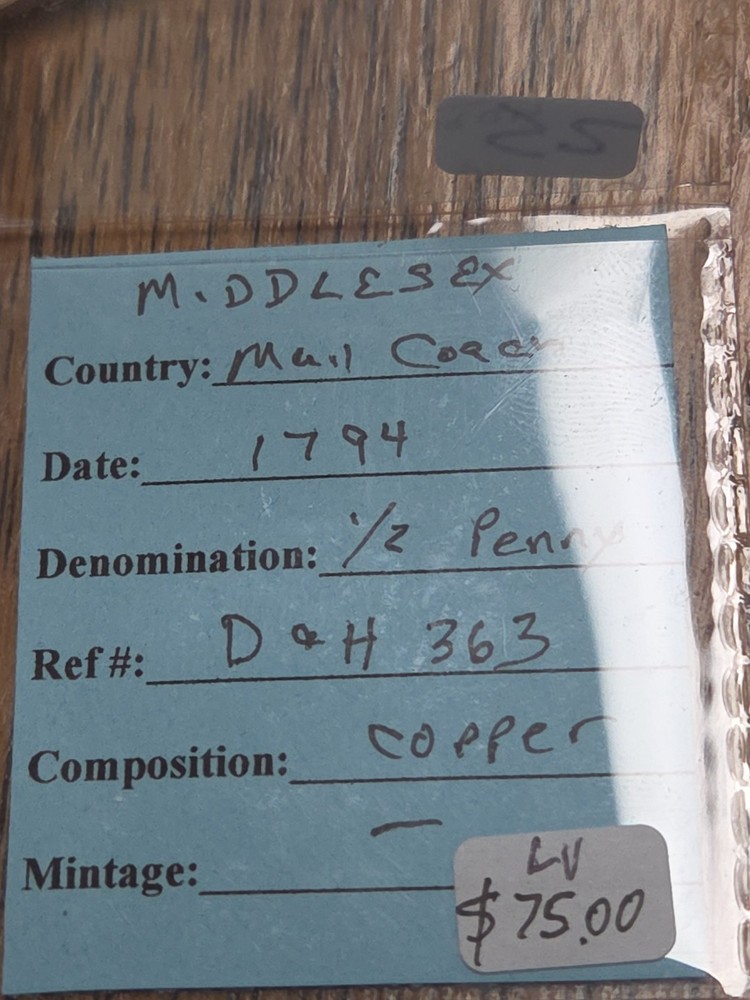 MIDDLESEX
Country: Mail Coach
Date: 1794
Denomination: 1/2 Penny
Ref #: D & H 363
Composition: copper
Mintage: —
LV
$75.00